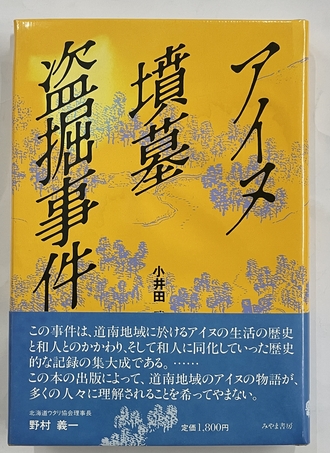 アイヌ
墳墓
盗掘事件
小井田
この事件は、道南地域に於けるアイヌの生活の歴史
と和人とのかかわり、そして和人に同化していった歴史
的な記録の集大成である。……
この本の出版によって、道南地域のアイヌの物語が、
多くの人々に理解されることを希ってやまない。
北海道ウタリ協会理事長
野村 義一
定価1,800円
みやま書房